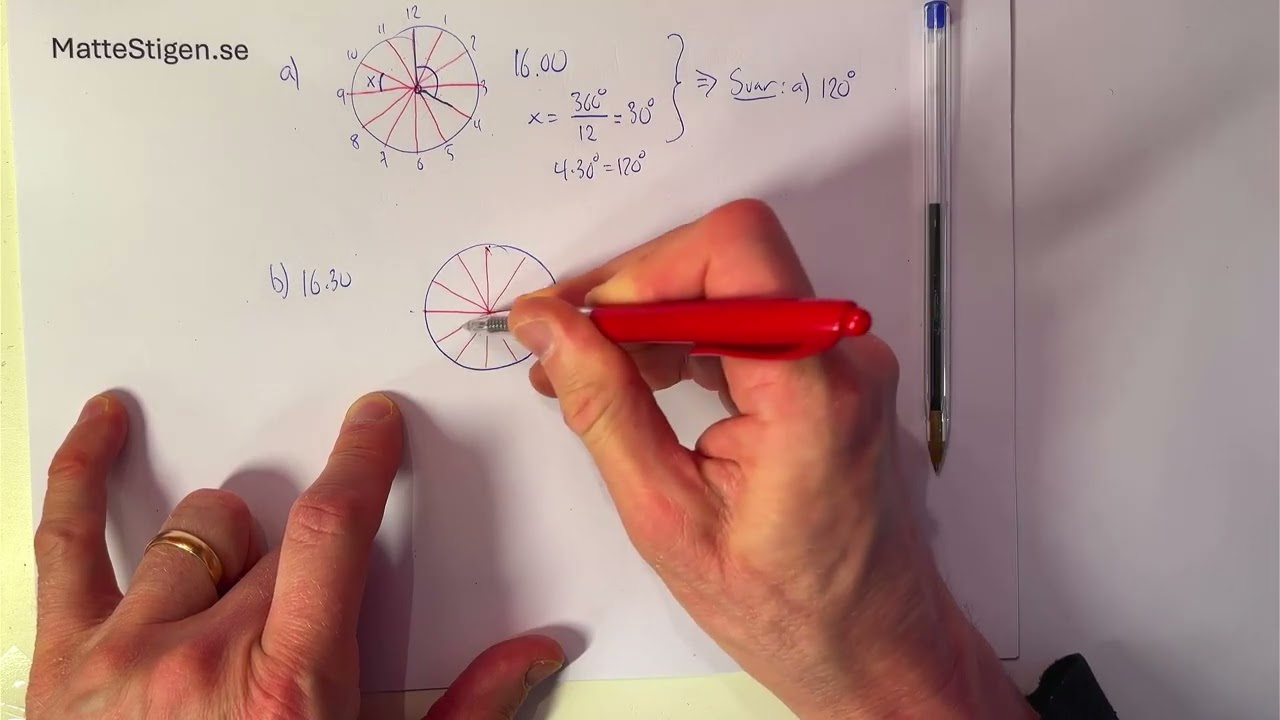 MatteStigen.se
a)
12
1
2
3
4
5
6
7
8
9
10
11
x
16.00
x = 360°/12 = 30°
4·30° = 120°
} ⇒ Svar: a) 120°
b) 16.30